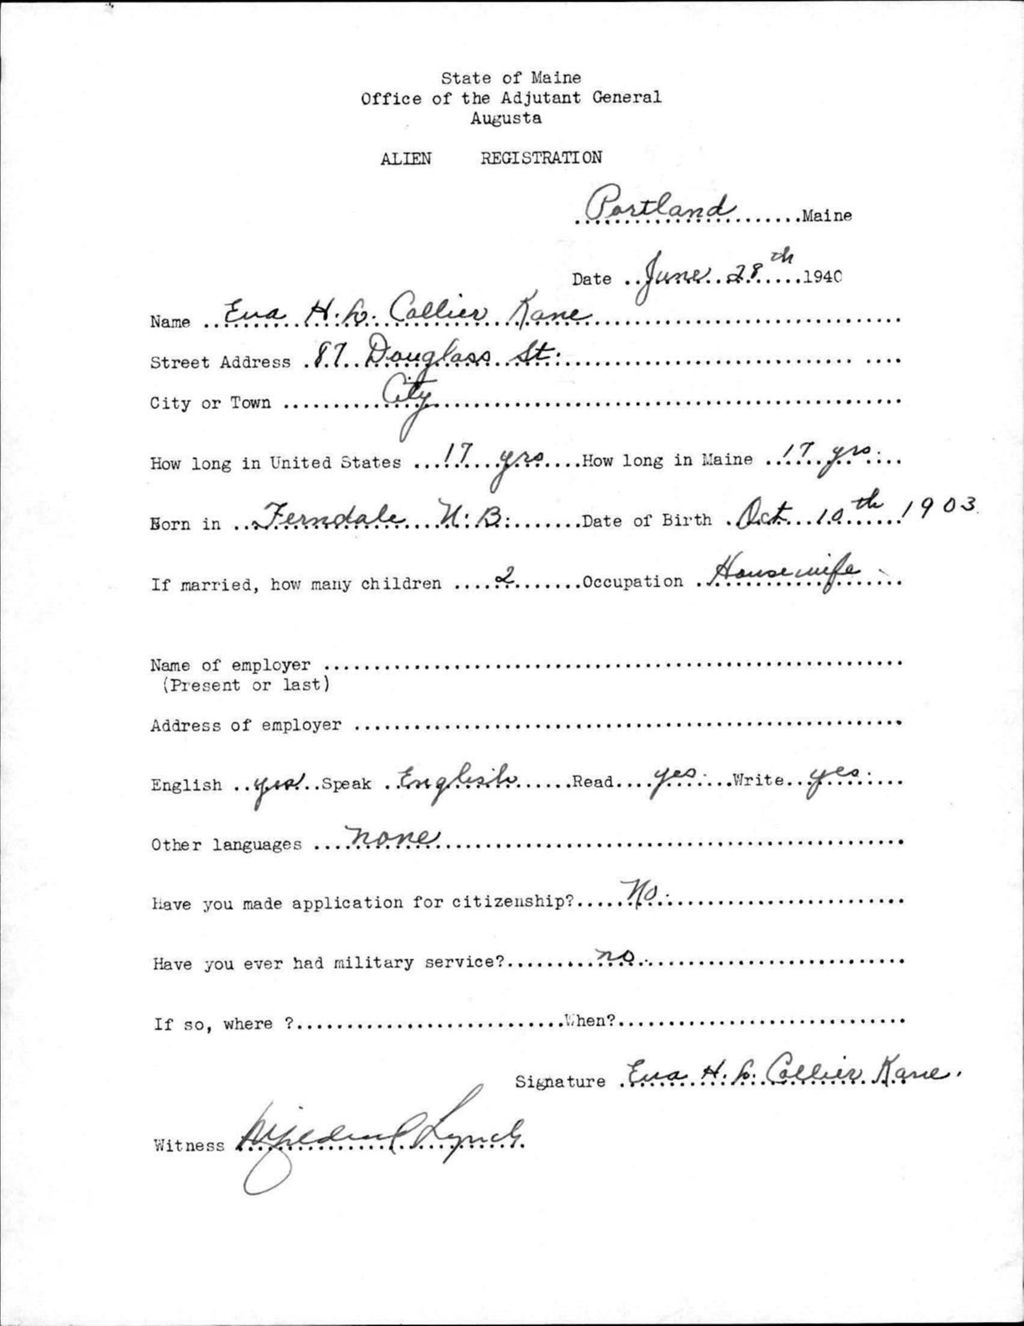 State of Maine
Office of the Adjutant General
Augusta
ALIEN REGISTRATION
Portland Maine
Date June 28th 1940
Name Eva H. L. Collier Kane
Street Address 87 Douglass St.
City or Town City
How long in United States 17 yrs How long in Maine 17 yrs.
Born in Ferndale N. B. Date of Birth Oct 10th 1903
If married, how many children 2 Occupation Housewife
Name of employer
(Present or last)
Address of employer
English yes Speak English Read yes Write yes
Other languages none
Have you made application for citizenship? No.
Have you ever had military service? no.
If so, where ? When?
Signature Eva H. L. Collier Kane.
Witness Lynch